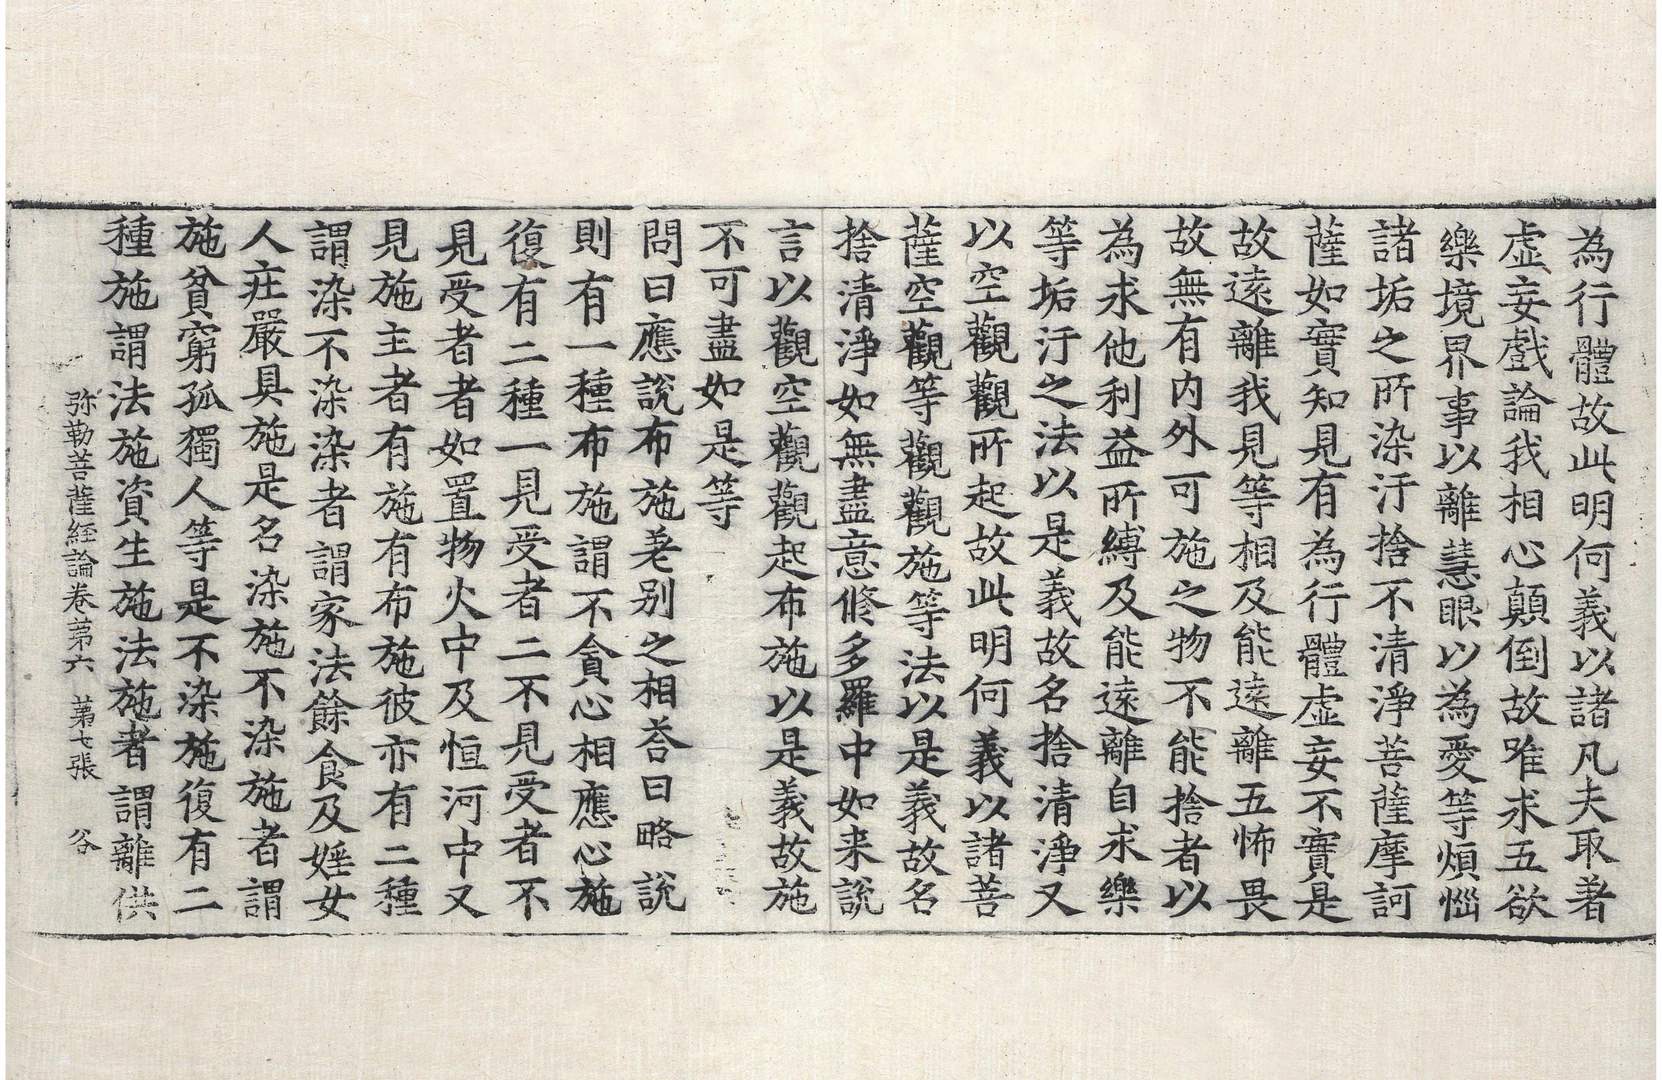 為行體故此明何義以諸凡夫取著
虛妄戲論我相心顛倒故唯求五欲
樂境界事以離慧眼以為愛等煩惱
諸垢之所染汙捨不清淨菩薩摩訶
薩如實知見有為行體虛妄不實是
故遠離我見等相及能遠離五怖畏
故無有內外可施之物不能捨者以
為求他利益所縛及能遠離自求樂
等垢汙之法以是義故名捨清淨又
以空觀觀所起故此明何義以諸菩
薩空觀等觀觀施等法以是義故名
捨清淨如無盡意修多羅中如來說
言以觀空觀觀起布施以是義故施
不可盡如是等
問曰應說布施差別之相荅曰略說
則有一種布施謂不貪心相應心施
復有二種一見受者二不見受者不
見受者者如置物火中及恒河中又
見施主者有施有布施彼亦有二種
謂染不染染者謂家法餘食及婬女
人疘嚴具施是名染施不染施者謂
施貧窮孤獨人等是不染施復有二
種施謂法施資生施法施者謂離供
弥勒菩薩経論卷苐六　苐七張　谷